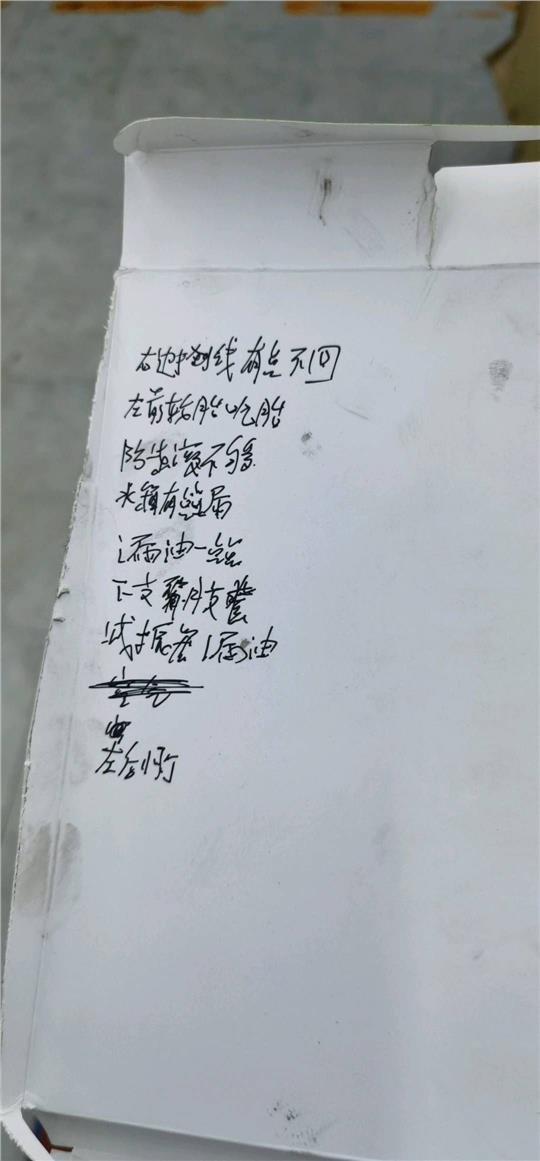 右边刹线有点不回
左前轮胎吃胎
防冻液不够
水箱有点漏
漏油一点
下支臂胶套
减振器漏油
左刹灯